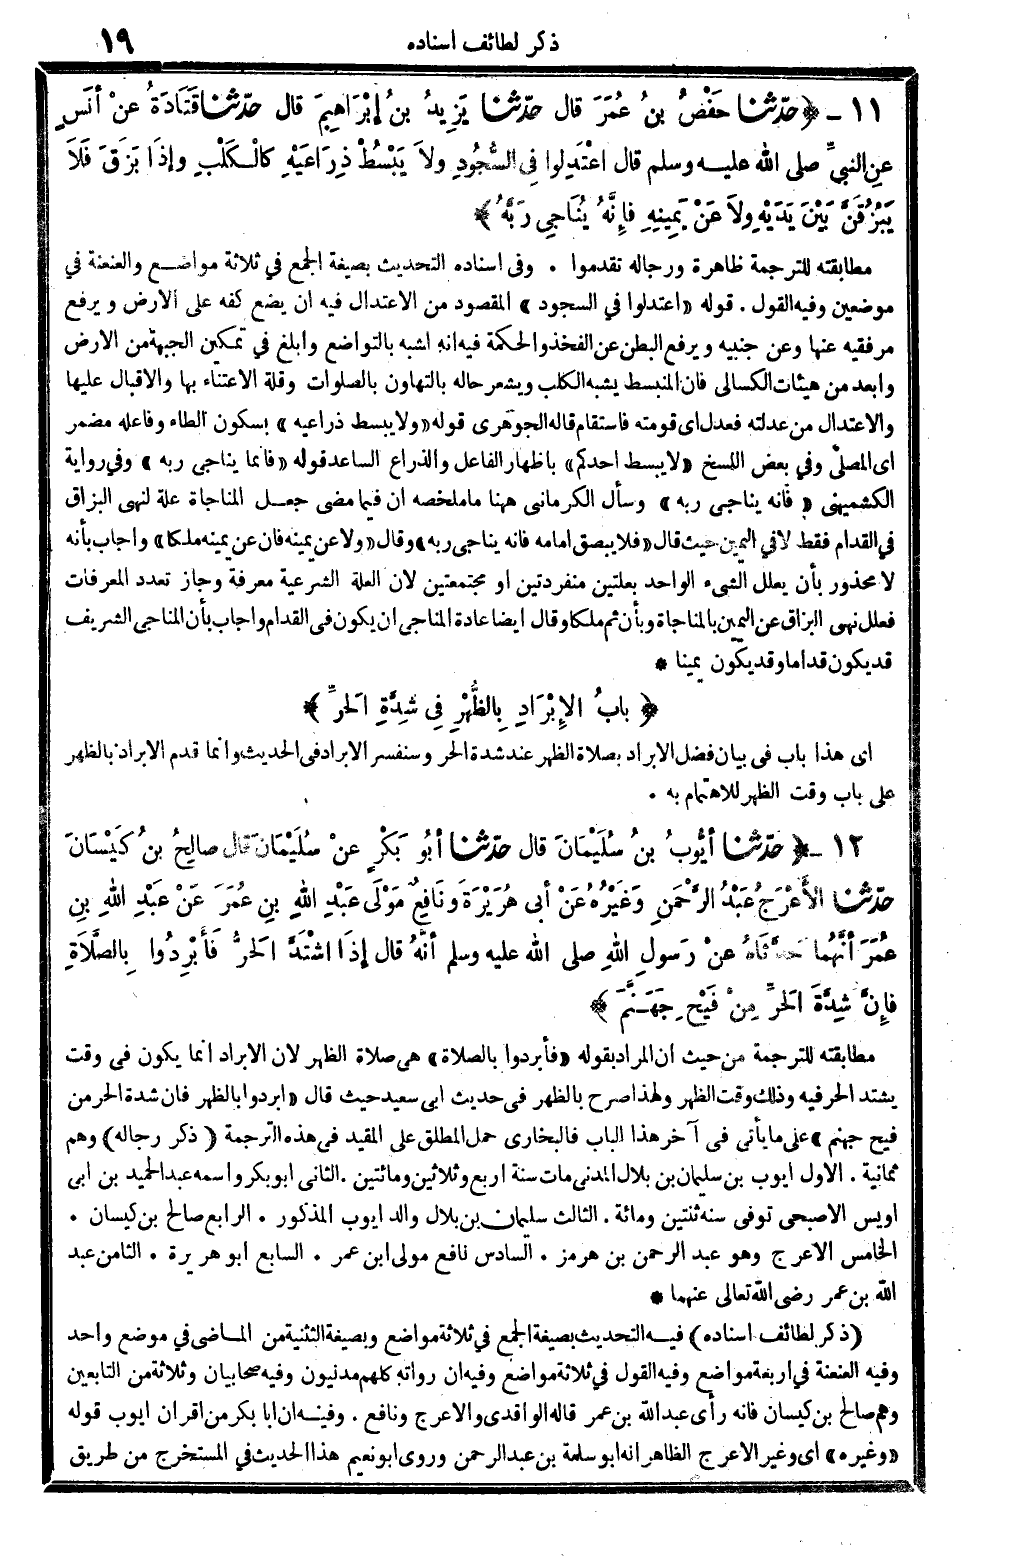 ذكر لطائف اسناده
١٩
١١ - ﴿ حدّثنا حَفْصُ بنُ عُمَرَ قال حدّثنا يَزِيدُ بنُ إبْرَاهِيمَ قال حدّثنا قَتَادَةُ عنْ أنَسٍ
عنِ النبيِّ صلى الله عليه وسلم قال اعْتَدِلوا في السُّجُودِ ولاَ يَبْسُطْ ذِرَاعَيْهِ كالْكَلْبِ وإذَا بَزَقَ فَلاَ
يَبْزُقَنَّ بَيْنَ يَدَيْهِ ولاَ عَنْ يَمِينِهِ فإنَّهُ يُنَاجِي رَبَّهُ ﴾
مطابقته للترجمة ظاهرة ورجاله تقدموا . وفى اسناده التحديث بصيغة الجمع في ثلاثة مواضع والعنعنة في
موضعين وفيه القول . قوله «اعتدلوا في السجود» المقصود من الاعتدال فيه ان يضع كفه على الارض ويرفع
مرفقيه عنها وعن جنبيه ويرفع البطن عن الفخذ والحكمة فيه انه اشبه بالتواضع وابلغ في تمكين الجبهة من الارض
وابعد من هيئات الكسالى فان المنبسط يشبه الكلب ويشعر حاله بالتهاون بالصلوات وقلة الاعتناء بها والاقبال عليها
والاعتدال من عدلته فعدل اى قومته فاستقام قاله الجوهرى قوله «ولا يبسط ذراعيه» بسكون الطاء وفاعله مضمر
اى المصلى وفي بعض النسخ «لا يبسط احدكم» باظهار الفاعل والذراع الساعد قوله «فانما يناجى ربه» وفي رواية
الكشميهنى «فانه يناجى ربه» وسأل الكرمانى هنا ما ملخصه ان فيما مضى جعل المناجاة علة لنهى البزاق
في القدام فقط لا في اليمين حيث قال «فلا يبصق امامه فانه يناجى ربه» وقال «ولا عن يمينه فان عن يمينه ملكا» واجاب بأنه
لا محذور بأن يعلل الشىء الواحد بعلتين منفردتين او مجتمعتين لان العلة الشرعية معرفة وجاز تعدد المعرفات
فعلل نهى البزاق عن اليمين بالمناجاة وبأن ثم ملكا وقال ايضا عادة المناجى ان يكون في القدام واجاب بأن المناجى الشريف
قد يكون قداما وقد يكون يمينا *
﴿ بابُ الإبْرَادِ بِالظُّهْرِ فِي شِدَّةِ الحَرِّ ﴾
اى هذا باب فى بيان فضل الابراد بصلاة الظهر عند شدة الحر وسنفسر الابراد فى الحديث وانما قدم الابراد بالظهر
على باب وقت الظهر للاهتمام به .
١٢ - ﴿ حدّثنا أيُّوبُ بنُ سُلَيْمَانَ قال حدّثنا أبُو بَكْرٍ عنْ سُلَيْمَانَ قال صالِحُ بنُ كَيْسَانَ
حدّثنا الأَعْرَجُ عَبْدُ الرَّحْمنِ وَغَيْرُهُ عَنْ أبى هُرَيْرَةَ ونَافِعٌ مَوْلَى عَبْدِ اللهِ بنِ عُمَرَ عَنْ عَبْدِ اللهِ بنِ
عُمَرَ أنَّهُما حَدَّثَاهُ عنْ رَسولِ اللهِ صلى الله عليه وسلم أنَّهُ قال إذَا اشْتَدَّ الحَرُّ فَأبْرِدُوا بِالصَّلاَةِ
فإنَّ شِدَّةَ الحَرِّ مِنْ فَيْحِ جَهَنَّمَ ﴾
مطابقته للترجمة من حيث ان المراد بقوله «فأبردوا بالصلاة» هى صلاة الظهر لان الابراد انما يكون فى وقت
يشتد الحر فيه وذلك وقت الظهر ولهذا صرح بالظهر فى حديث ابى سعيد حيث قال «ابردوا بالظهر فان شدة الحر من
فيح جهنم» على ما يأتى فى آخر هذا الباب فالبخارى حمل المطلق على المقيد فى هذه الترجمة (ذكر رجاله) وهم
ثمانية . الاول ايوب بن سليمان بن بلال المدنى مات سنة اربع وثلاثين ومائتين . الثانى ابو بكر واسمه عبد الحميد بن ابى
اويس الاصبحى توفى سنه ثنتين ومائة . الثالث سليمان بن بلال والد ايوب المذكور . الرابع صالح بن كيسان .
الخامس الاعرج وهو عبد الرحمن بن هرمز . السادس نافع مولى ابن عمر . السابع ابو هريرة . الثامن عبد
الله بن عمر رضى الله تعالى عنهما *
(ذكر لطائف اسناده) فيه التحديث بصيغة الجمع في ثلاثة مواضع وبصيغة التثنية من الماضى في موضع واحد
وفيه العنعنة في اربعة مواضع وفيه القول في ثلاثة مواضع وفيه ان رواته كلهم مدنيون وفيه صحابيان وثلاثة من التابعين
وهم صالح بن كيسان فانه رأى عبد الله بن عمر قاله الواقدى والاعرج ونافع . وفيه ان ابا بكر من اقران ايوب قوله
«وغيره» اى وغير الاعرج الظاهر انه ابو سلمة بن عبد الرحمن وروى ابو نعيم هذا الحديث في المستخرج من طريق